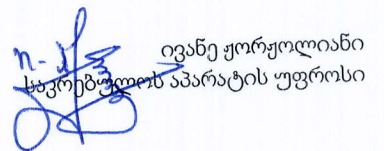 ივანე ჟორჟოლიანი
საკრებულოს აპარატის უფროსი